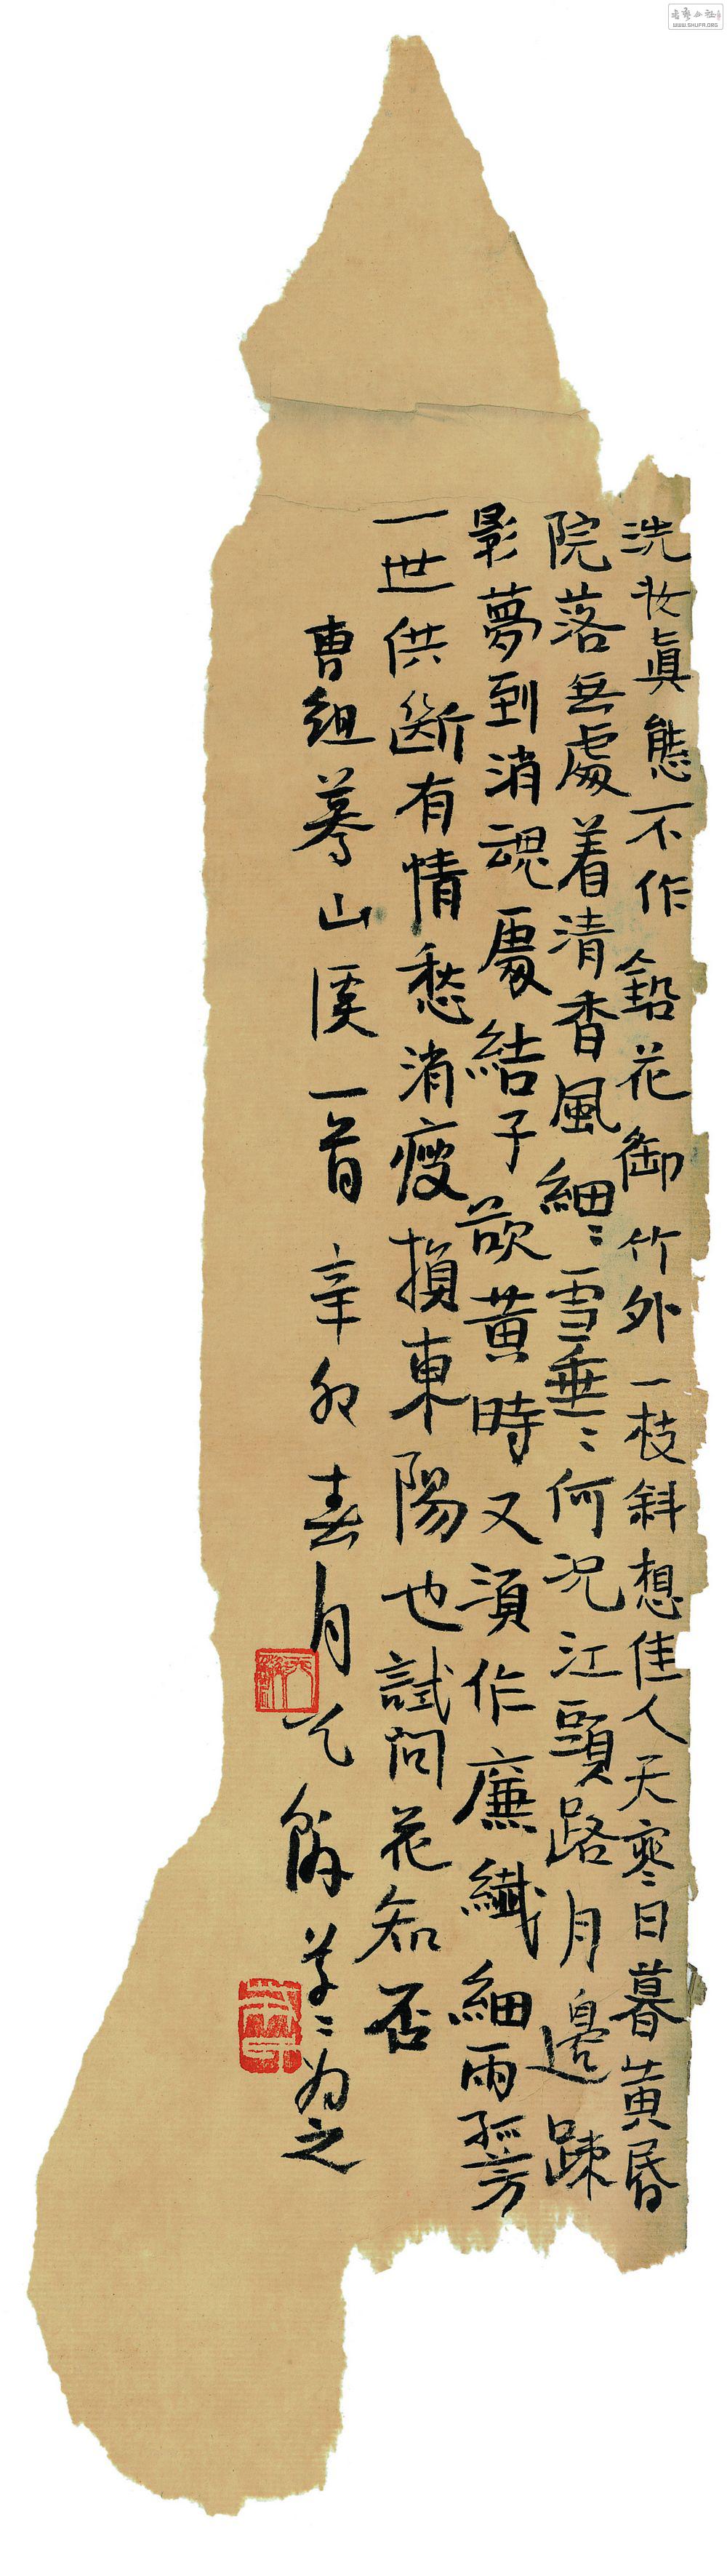 洗妝眞態不作鉛花御竹外一枝斜想佳人天寒日暮黄昏
院落無處着清香風細〻雪垂〻何況江頭路月邊踈
影夢到消魂處結子欲黄時又須作廉纖細雨孤芳
一世供斷有情愁消瘦損東陽也試問花知否
曹組驀山溪一首辛卯春月
草〻为之
WWW.SHUFA.ORG